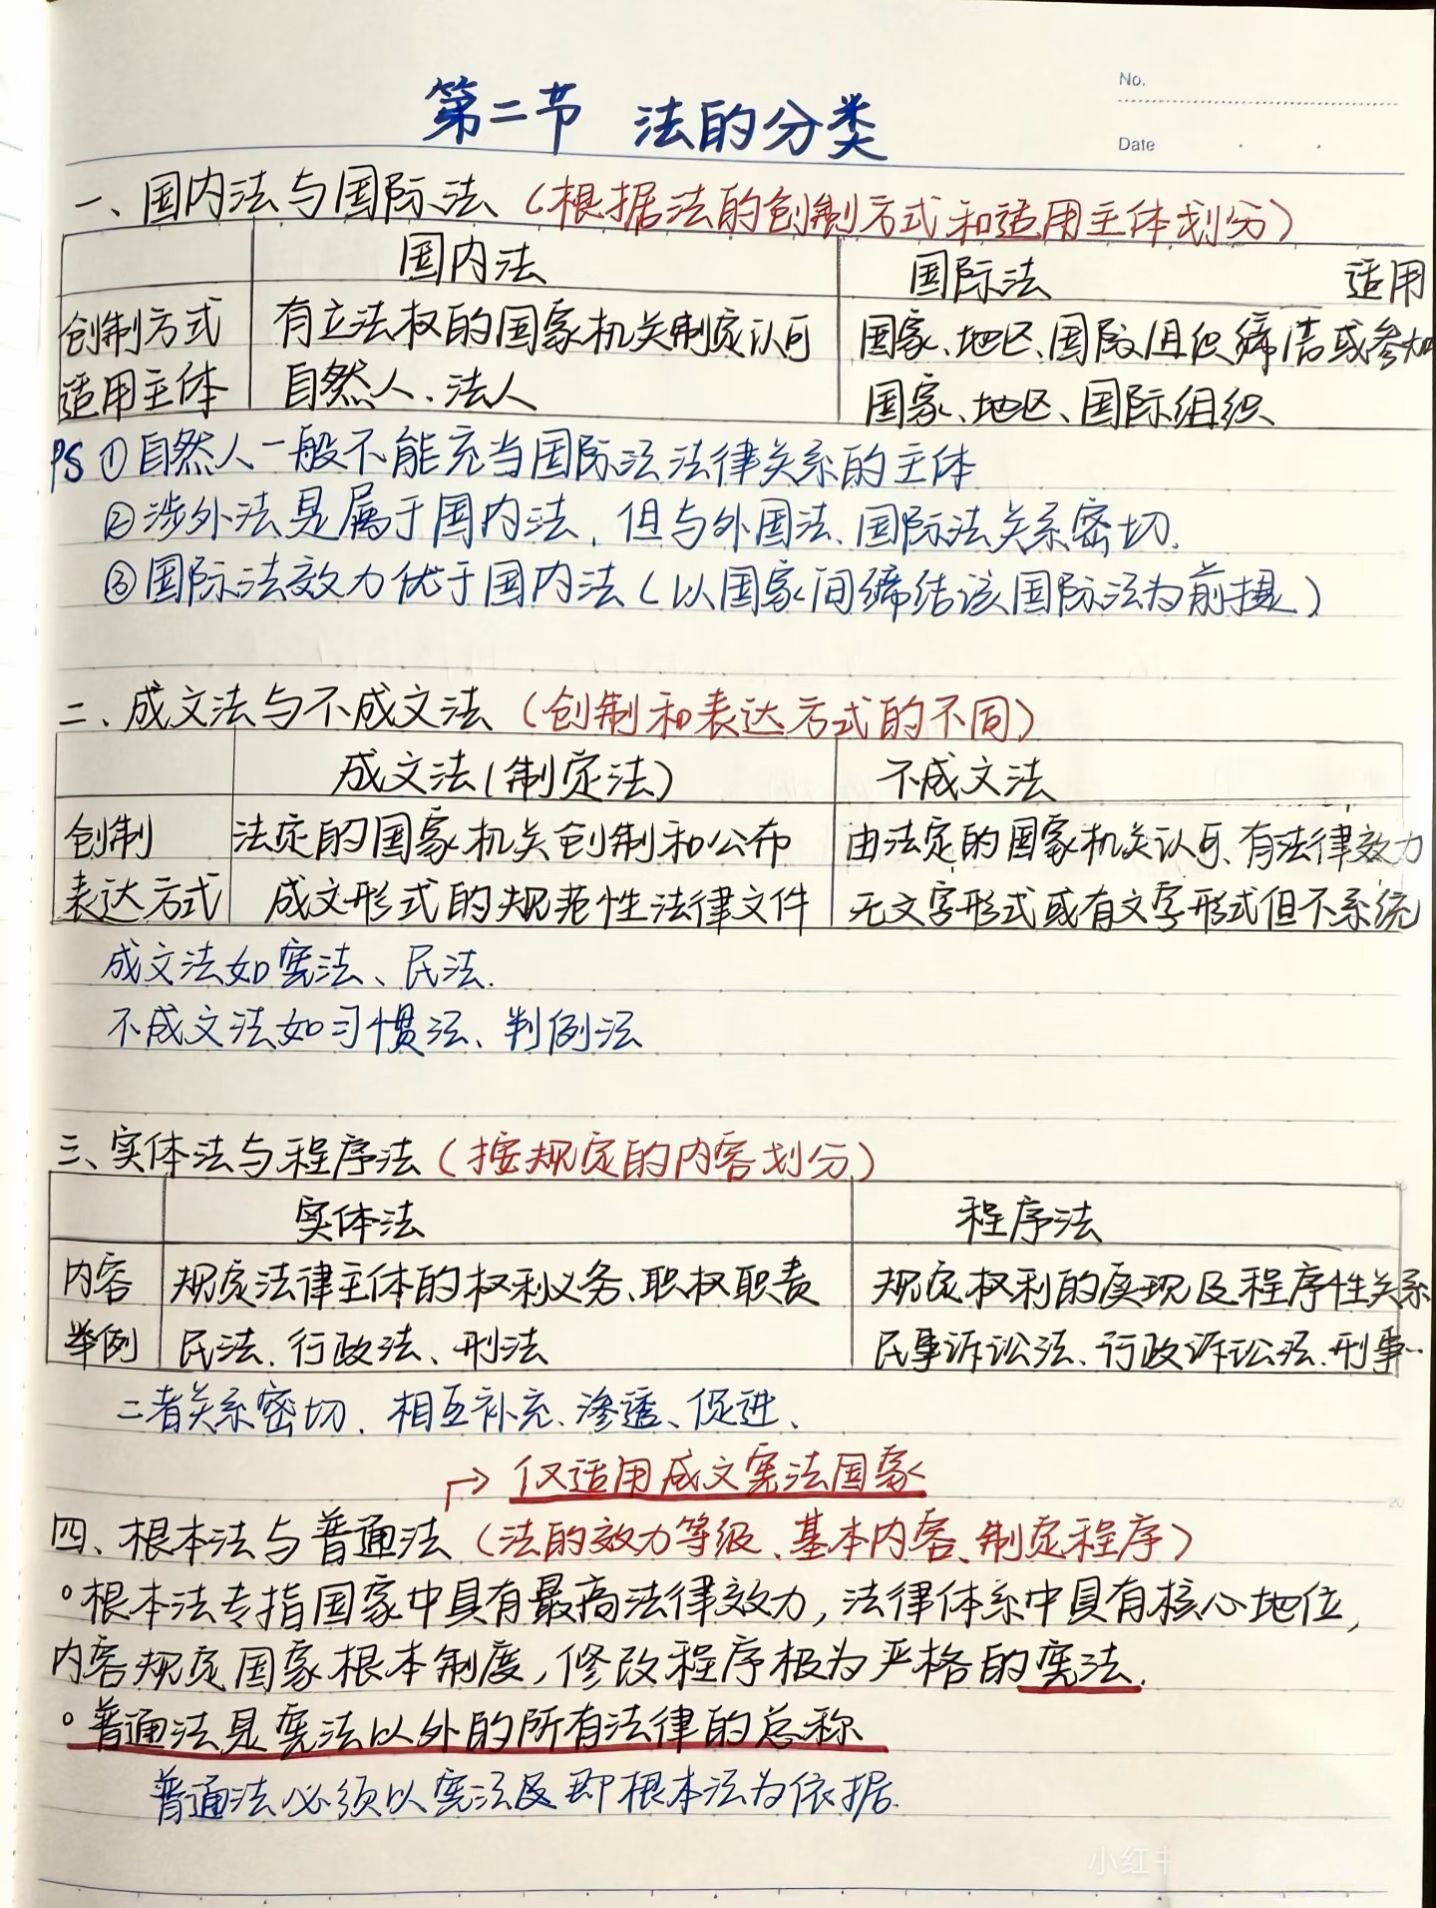 No.
Date
第二节 法的分类
一、国内法与国际法（根据法的创制方式和适用主体划分）
国内法 国际法 适用
创制方式 有立法权的国家机关制定认可 国家、地区、国际组织缔结或参加
适用主体 自然人、法人 国家、地区、国际组织
PS ①自然人一般不能充当国际法法律关系的主体
②涉外法是属于国内法，但与外国法、国际法关系密切.
③国际法效力优于国内法（以国家间缔结该国际法为前提）
二、成文法与不成文法（创制和表达方式的不同）
成文法（制定法） 不成文法
创制 法定的国家机关创制和公布 由法定的国家机关认可、有法律效力
表达方式 成文形式的规范性法律文件 无文字形式或有文字形式但不系统
成文法如宪法、民法.
不成文法如习惯法、判例法
三、实体法与程序法（按规定的内容划分）
实体法 程序法
内容 规定法律主体的权利义务、职权职责 规定权利的实现及程序性关系
举例 民法、行政法、刑法 民事诉讼法、行政诉讼法、刑事…
二者关系密切、相互补充、渗透、促进、
→ 仅适用成文宪法国家
四、根本法与普通法（法的效力等级、基本内容、制定程序）
°根本法专指国家中具有最高法律效力，法律体系中具有核心地位，
内容规定国家根本制度，修改程序极为严格的宪法.
°普通法是宪法以外的所有法律的总称
普通法必须以宪法及即根本法为依据.
20
小红书